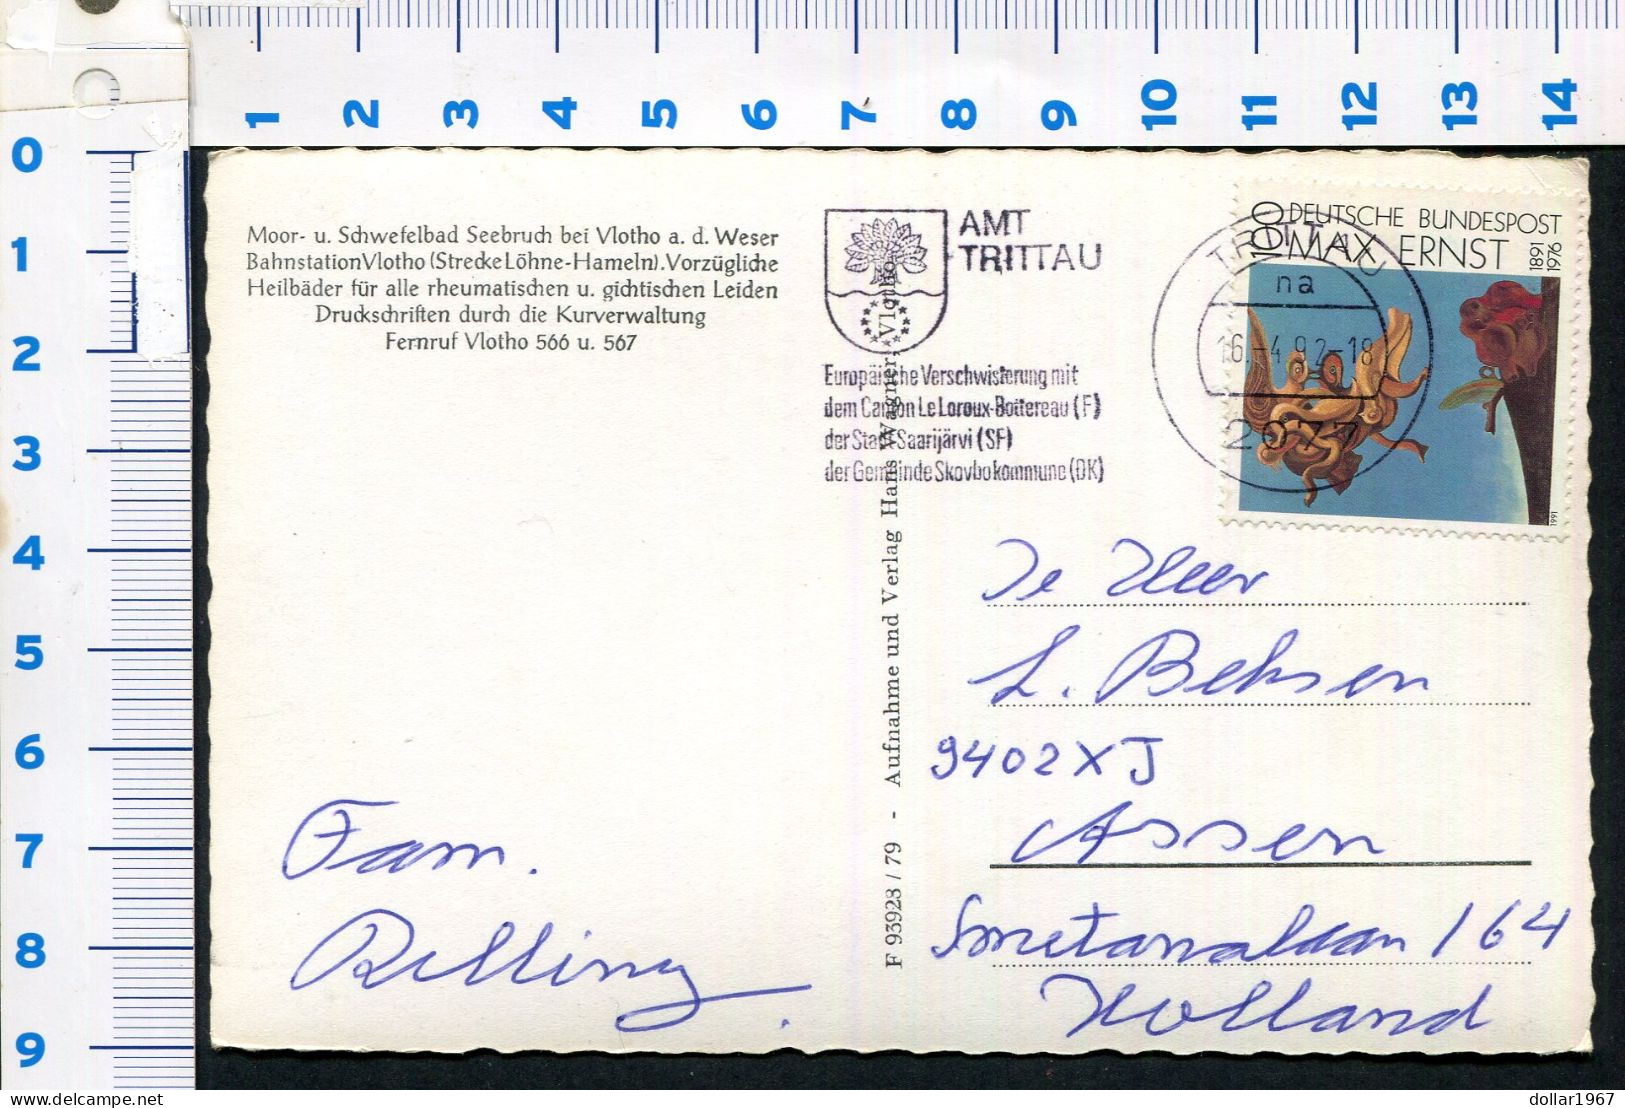 1 2 3 4 5 6 7 8 9 10 11 12 13 14
0
1
2
3
4
5
6
7
8
9
Moor- u. Schwefelbad Seebruch bei Vlotho a. d. Weser
Bahnstation Vlotho (Strecke Löhne-Hameln). Vorzügliche
Heilbäder für alle rheumatischen u. gichtischen Leiden
Druckschriften durch die Kurverwaltung
Fernruf Vlotho 566 u. 567
AMT
TRITTAU
Europäische Verschwisterung mit
dem Canton Le Loroux-Bottereau (F)
der Stadt Saarijärvi (SF)
der Gemeinde Skovbo kommune (DK)
TRITTAU
na
16.-4.92-18
2077
100
DEUTSCHE BUNDESPOST
MAX ERNST
1891
1976
1991
F 93923 / 79 - Aufnahme und Verlag Hans Wagner, Vlotho
De Heer
L. Behsen
9402 XJ
Assen
Smetanalaan 164
Holland
Fam.
Relling.
dollar1967